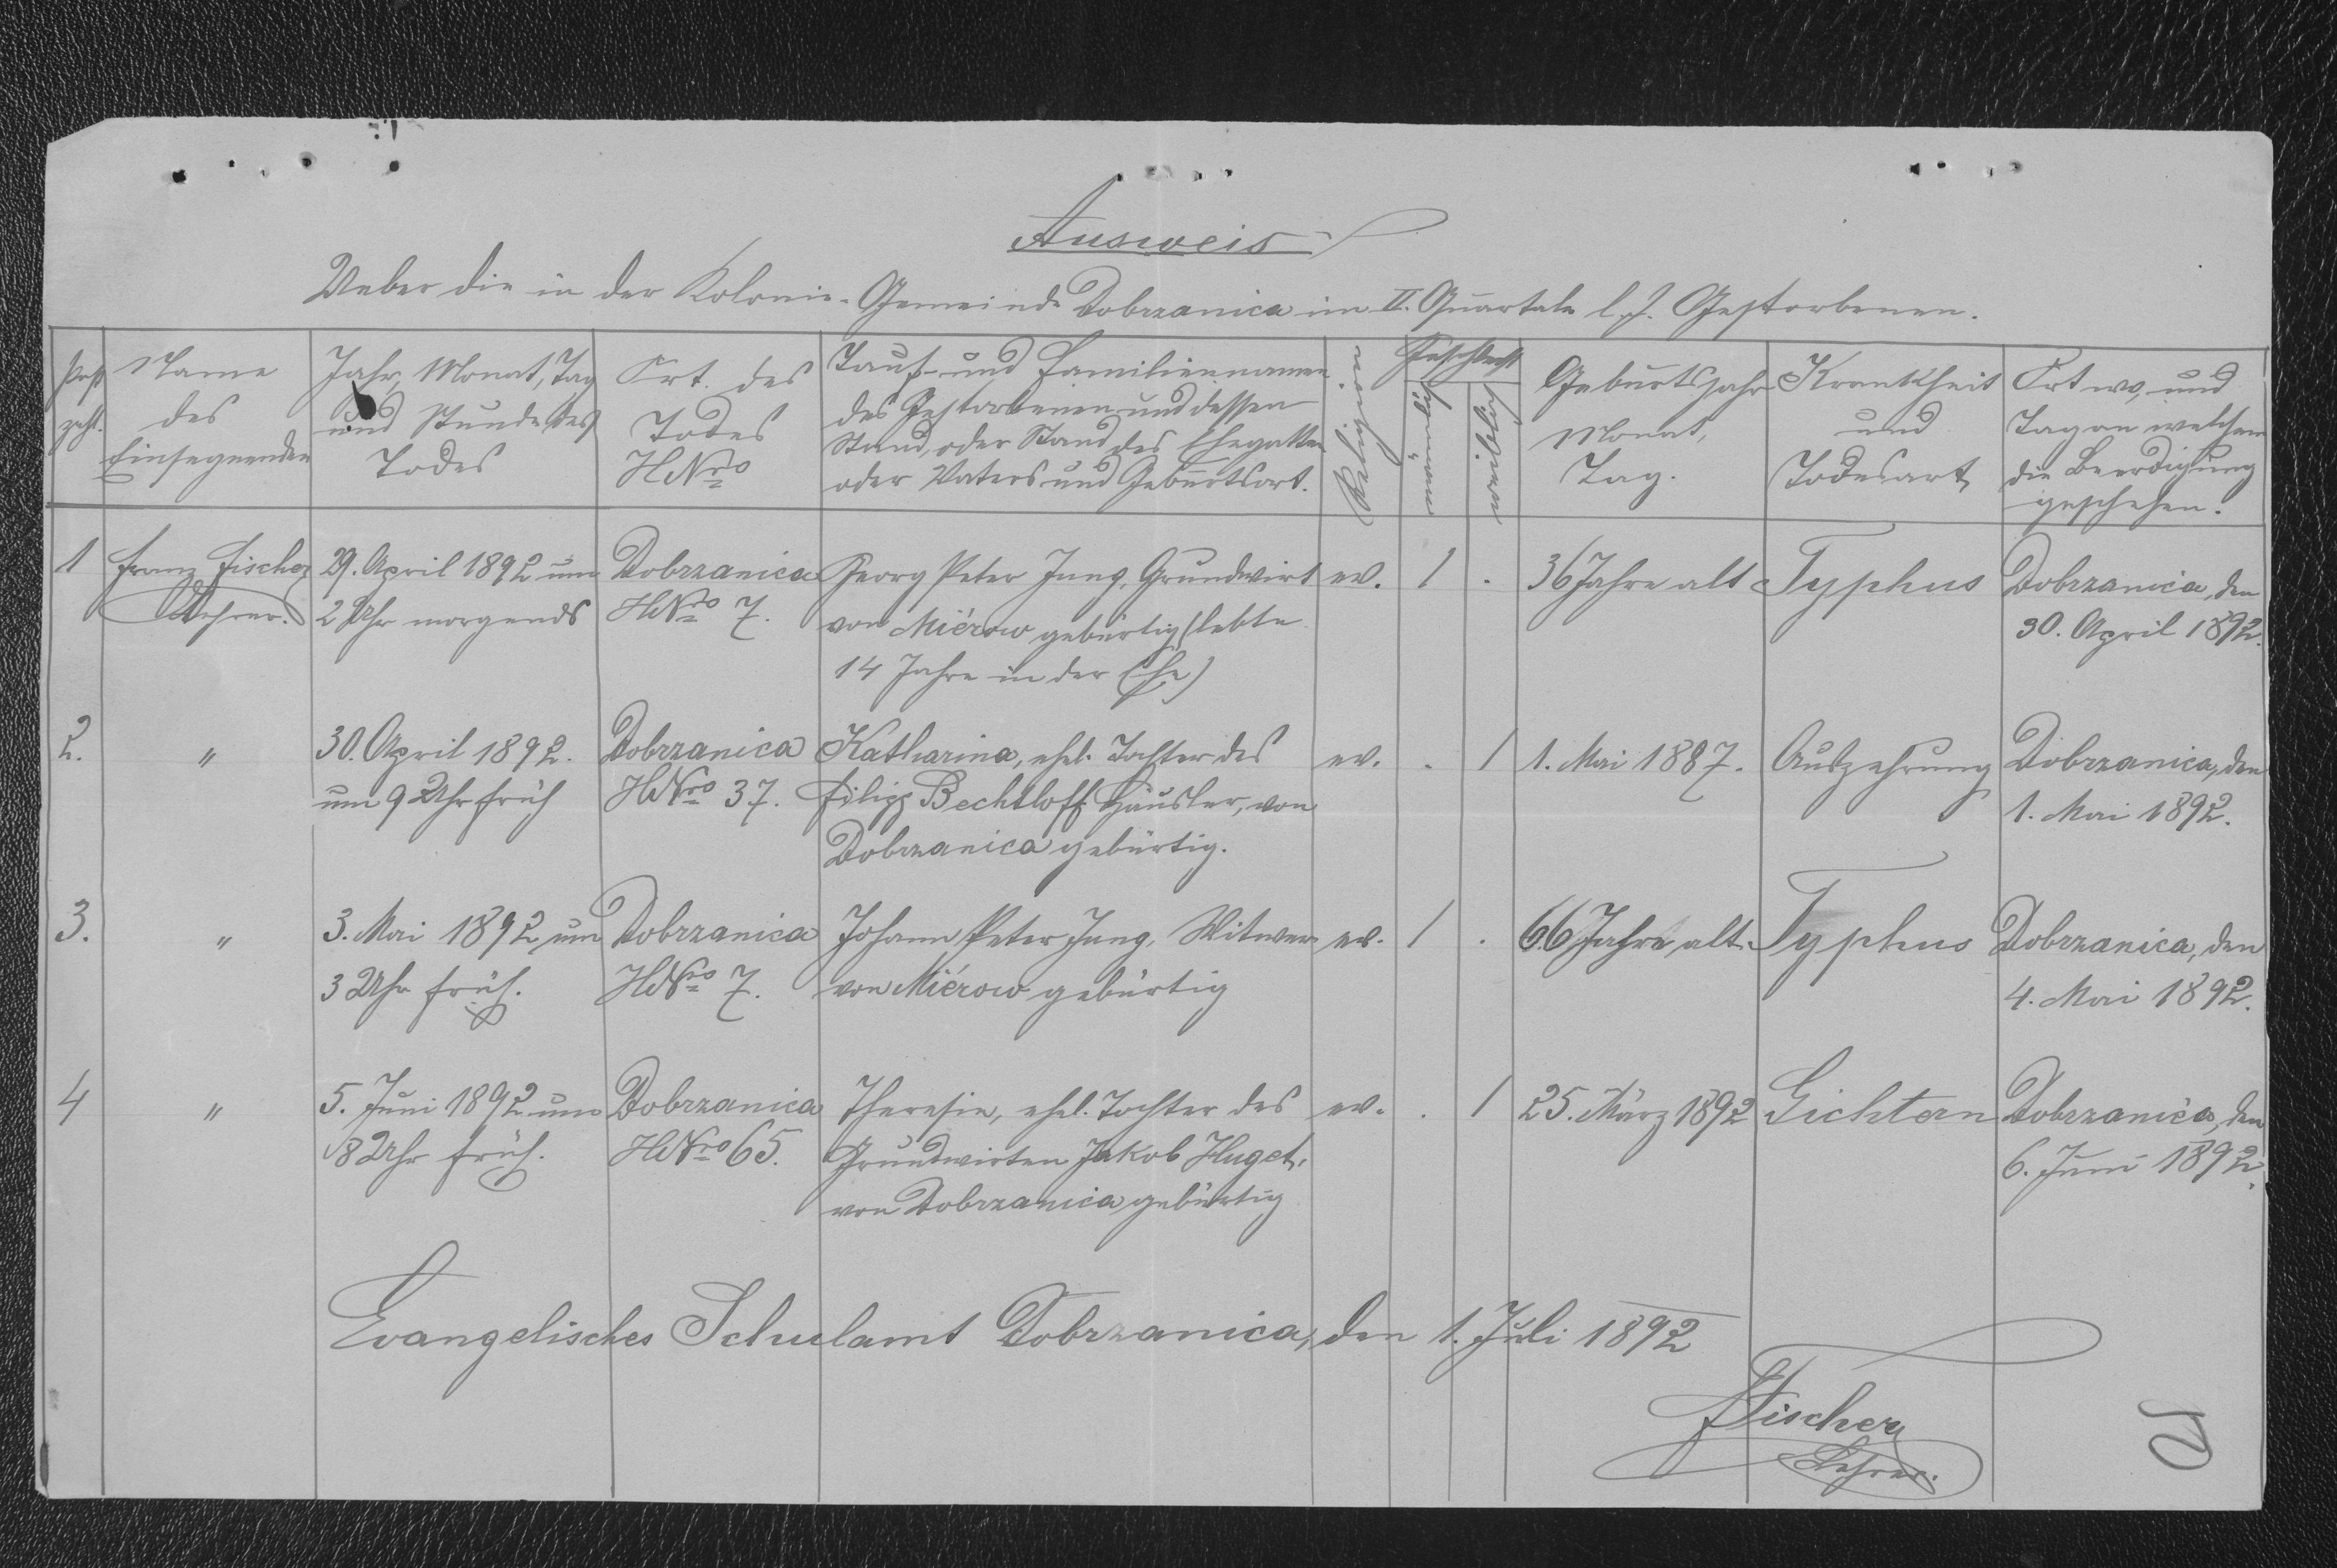 Ausweis
Ueber die in der Kolonie-Gemeinde Dobrzanica im II. Quartale l. J. Gestorbenen.
Post
zahl.
Name
des
Einsegnenden
Jahr, Monat, Tag
und Stunde des
Todes
Ort des
Todes
HNro
Tauf- und Familiennamen
des Gestorbenen und dessen
Stand, oder Stand des Ehegatten
oder Vaters und Geburtsort.
Religion
Geschlecht
männlich
weiblich
Geburtsjahr
Monat,
Tag.
Krankheit
und
Todesart
Ort wo, und
Tag an welchem
die Beerdigung
geschehen.
1 Franz Fischer 29. April 1892 um Dobrzanica Georg Peter Jung, Grundwirt ev. 1 . 36 Jahre alt Typhus Dobrzanica, den
Lehrer. 2 Uhr morgends HNro 7. von Miérow gebürtig (lebte 30. April 1892.
14 Jahre in der Ehe)
2. " 30. April 1892. Dobrzanica Katharina, ehel. Tochter des ev. . 1 1. Mai 1887. Auszehrung Dobrzanica, den
um 9 Uhr früh HNro 37. Filipp Bechtloff Häusler, von 1. Mai 1892.
Dobrzanica gebürtig.
3. " 3. Mai 1892 um Dobrzanica Johann Peter Jung, Witwer ev. 1 . 66 Jahre alt. Typhus Dobrzanica, den
3 Uhr früh. HNro 7. von Miérow gebürtig 4. Mai 1892.
4 " 5. Juni 1892 um Dobrzanica Theresie, ehel. Tochter des ev. . 1 25. März 1892 Gichtern Dobrzanica, den
8 Uhr früh. HNro 65. Grundwirten Jakob Huget, 6. Juni 1892.
von Dobrzanica gebürtig
Evangelisches Schulamt Dobrzanica, den 1. Juli 1892
FFischer
Lehrer.